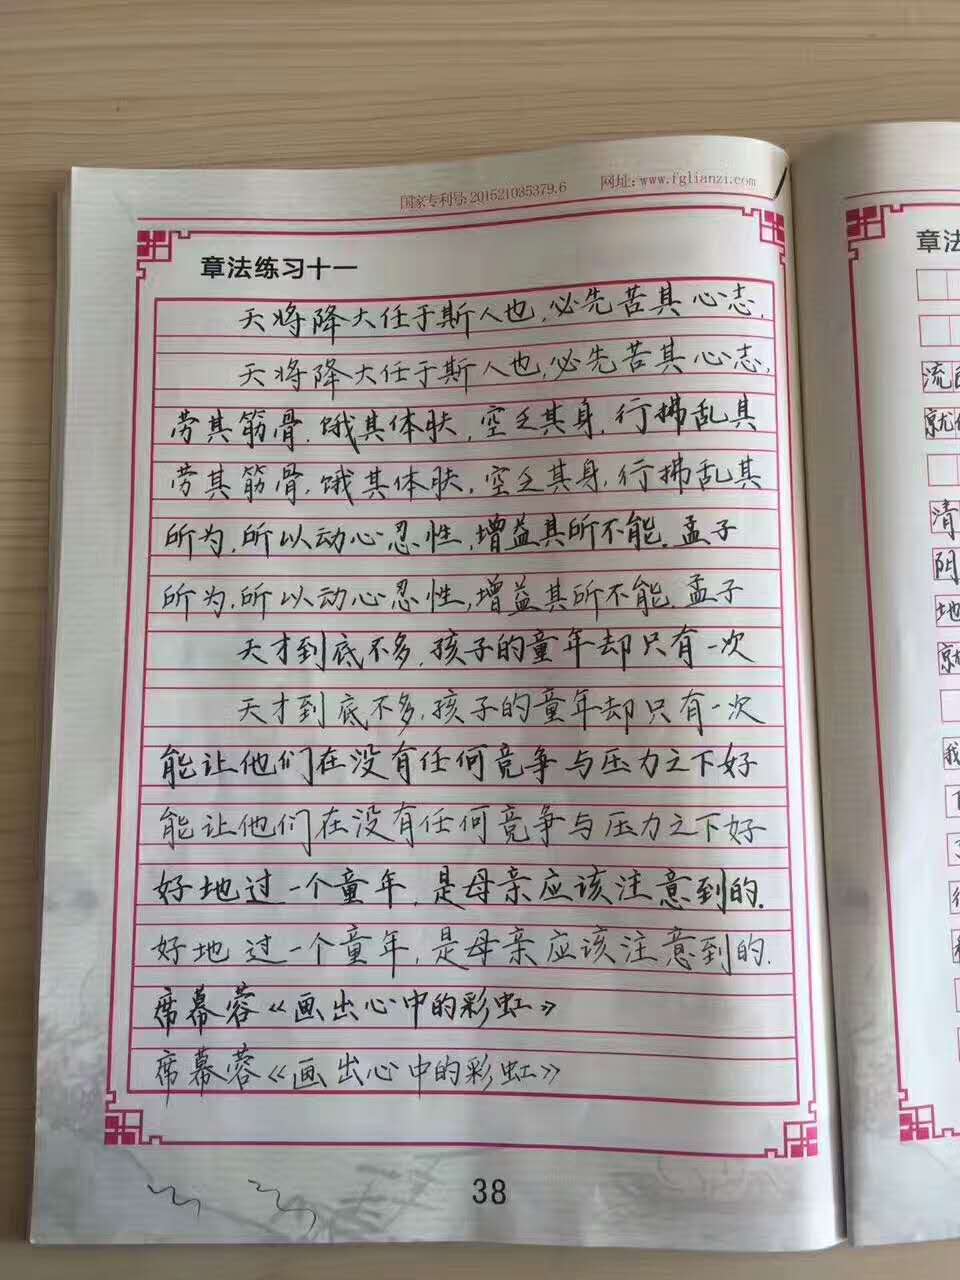 国家专利号:201521035379.6 网址:www.fglianzi.com
章法练习十一
天将降大任于斯人也,必先苦其心志,
天将降大任于斯人也,必先苦其心志,
劳其筋骨,饿其体肤,空乏其身,行拂乱其
劳其筋骨,饿其体肤,空乏其身,行拂乱其
所为,所以动心忍性,增益其所不能.孟子
所为,所以动心忍性,增益其所不能.孟子
天才到底不多,孩子的童年却只有一次
天才到底不多,孩子的童年却只有一次
能让他们在没有任何竞争与压力之下好
能让他们在没有任何竞争与压力之下好
好地过一个童年,是母亲应该注意到的.
好地过一个童年,是母亲应该注意到的.
席幕蓉《画出心中的彩虹》
席幕蓉《画出心中的彩虹》
38
章法
流
就
清
阴
地
就
我